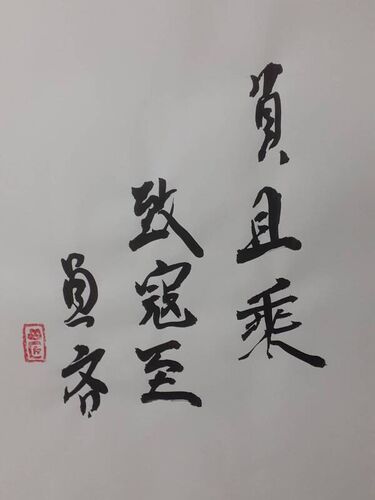 負且乘
致寇至
貞吝